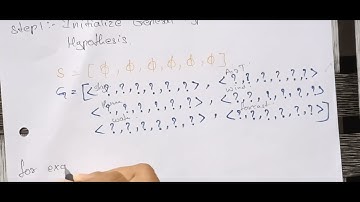 Step1:- Initialize General &
Hypothesis.
S = [ ϕ, ϕ, ϕ, ϕ, ϕ, ϕ ]
G = [<?, ?, ?, ?, ?, ?>, <?, ?, ?, ?, ?, ?>
wind
<?, ?, ?, ?, ?, ?>, <?, ?, ?, ?, ?, ?>
water forecast
<?, ?, ?, ?, ?, ?>, <?, ?, ?, ?, ?, ?>]
for exa